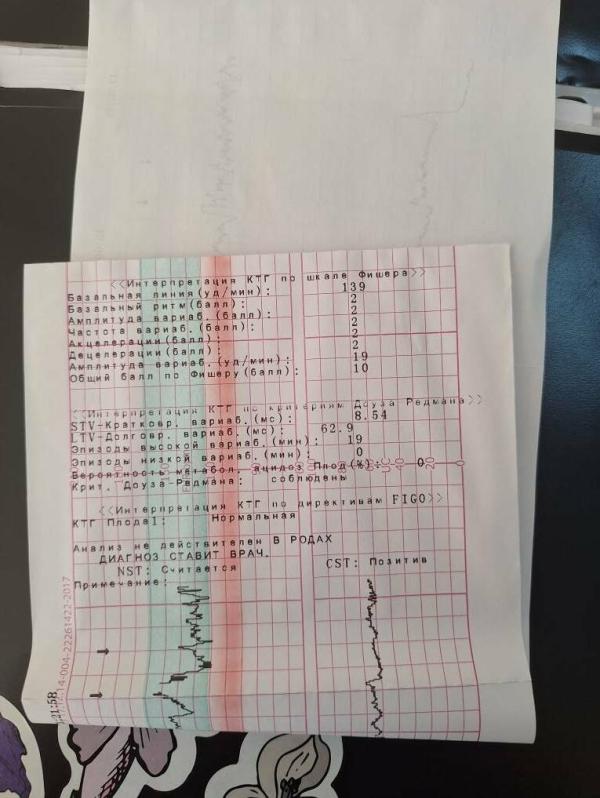 <<Интерпретация КТГ по шкале Фишера>>
Базальная линия(уд/мин): 139
Базальный ритм(балл): 2
Амплитуда вариаб.(балл): 2
Частота вариаб.(балл): 2
Акцелерации(балл): 2
Децелерации(балл): 2
Амплитуда вариаб.(уд/мин): 19
Общий балл по Фишеру(балл): 10
<<Интерпретация КТГ по критериям Доуза Редмана>>
STV-Кратковр. вариаб.(мс): 8.54
LTV-Долговр. вариаб.(мс): 62.9
Эпизоды высокой вариаб.(мин): 19
Эпизоды низкой вариаб.(мин): 0
Вероятность метабол. ацидоз Плод(%): 0
Крит. Доуза-Редмана: соблюдены
<<Интерпретация КТГ по директивам FIGO>>
КТГ Плода1: Нормальная
Анализ не действителен В РОДАХ
ДИАГНОЗ СТАВИТ ВРАЧ.
NST: Считается CST: Позитив
Примечание:
14-004-22261422-2017
21:58
UC
40
20
0